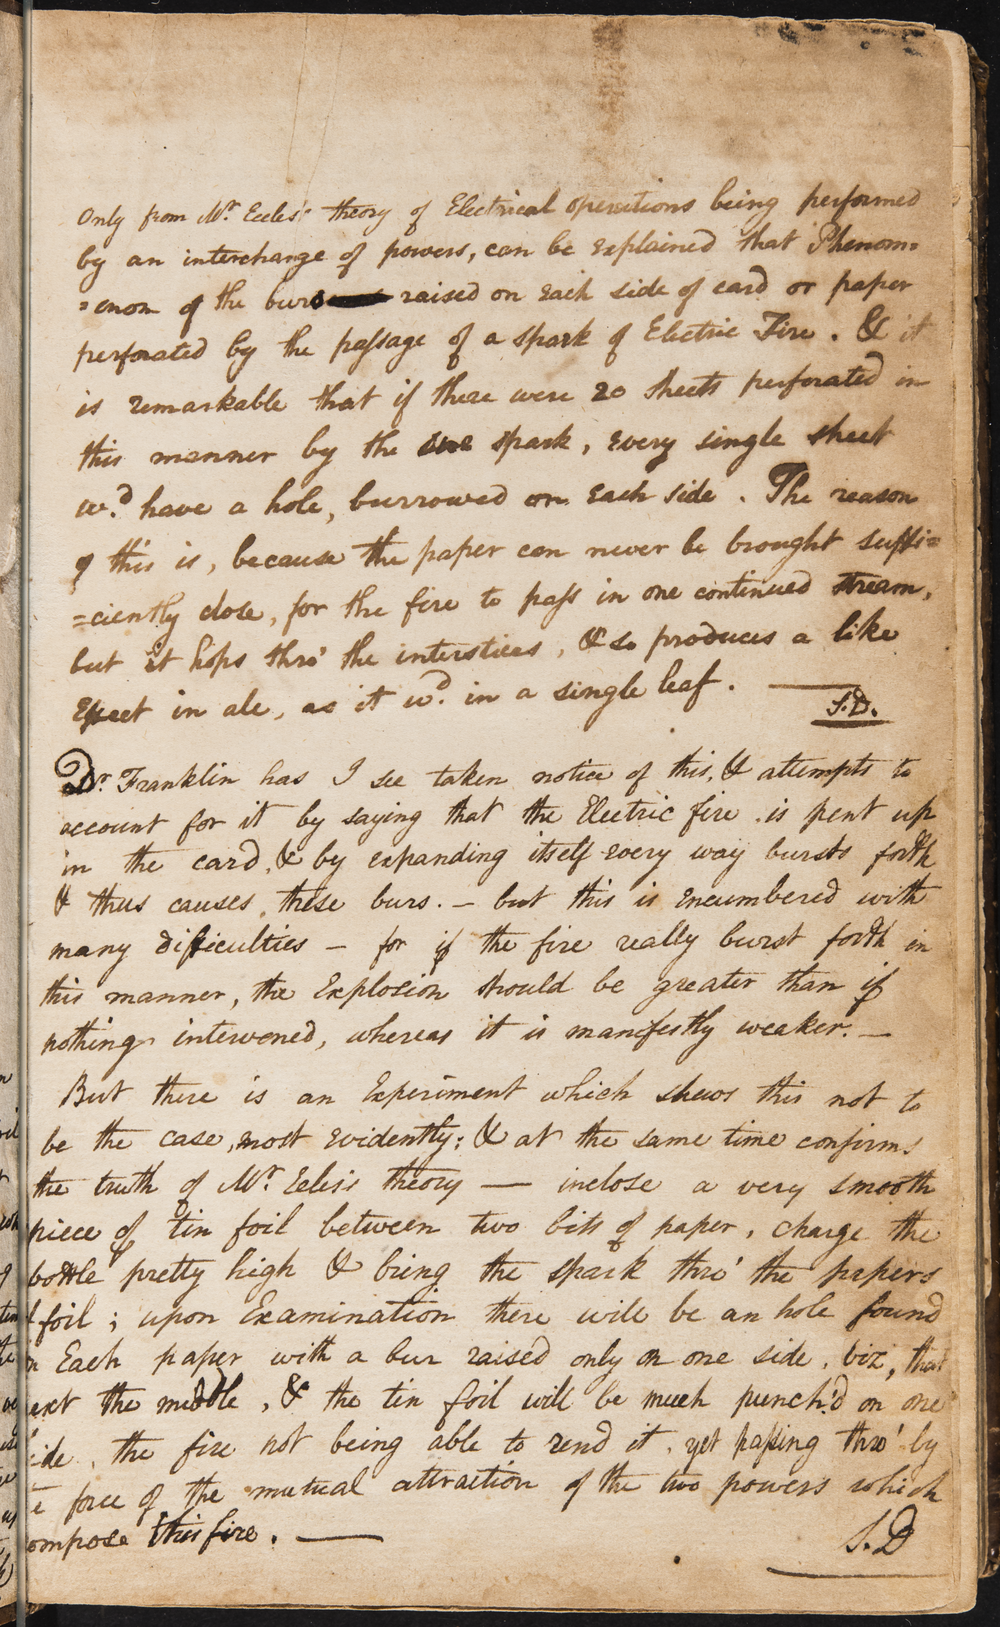 Only from Mr. Eeles's theory of Electrical operations being performed
by an interchange of powers, can be explained that Phenom=
=enon of the burs raised on each side of card or paper
perforated by the passage of a spark of Electric Fire. & it
is remarkable that if there were 20 sheets perforated in
this manner by the one spark, every single sheet
wd. have a hole, burrowed on each side. The reason
of this is, because the paper can never be brought suffi=
=ciently close, for the fire to pass in one continued stream,
but it hops thro' the interstices, & so produces a like
Effect in ale, as it wd. in a single leaf. —
S.D.
Dr. Franklin has I see taken notice of this, & attempts to
account for it by saying that the Electric fire is pent up
in the card, & by expanding itself every way bursts forth
& thus causes these burs. – but this is encumbered with
many difficulties – for if the fire really burst forth in
this manner, the Explosion should be greater than if
nothing intervened, whereas it is manifestly weaker. –
But there is an Experiment which shews this not to
be the case, most evidently; & at the same time confirms
the truth of Mr. Eeles's theory — inclose a very smooth
piece of tin foil between two bits of paper, charge the
bottle pretty high & bring the spark thro' the papers
& foil; upon Examination there will be an hole found
in Each paper with a bur raised only on one side, viz, that
next the middle, & the tin foil will be much punch'd on one
side, the fire not being able to rend it, yet passing thro' by
force of the mutual attraction of the two powers which
compose this fire. —
S.D